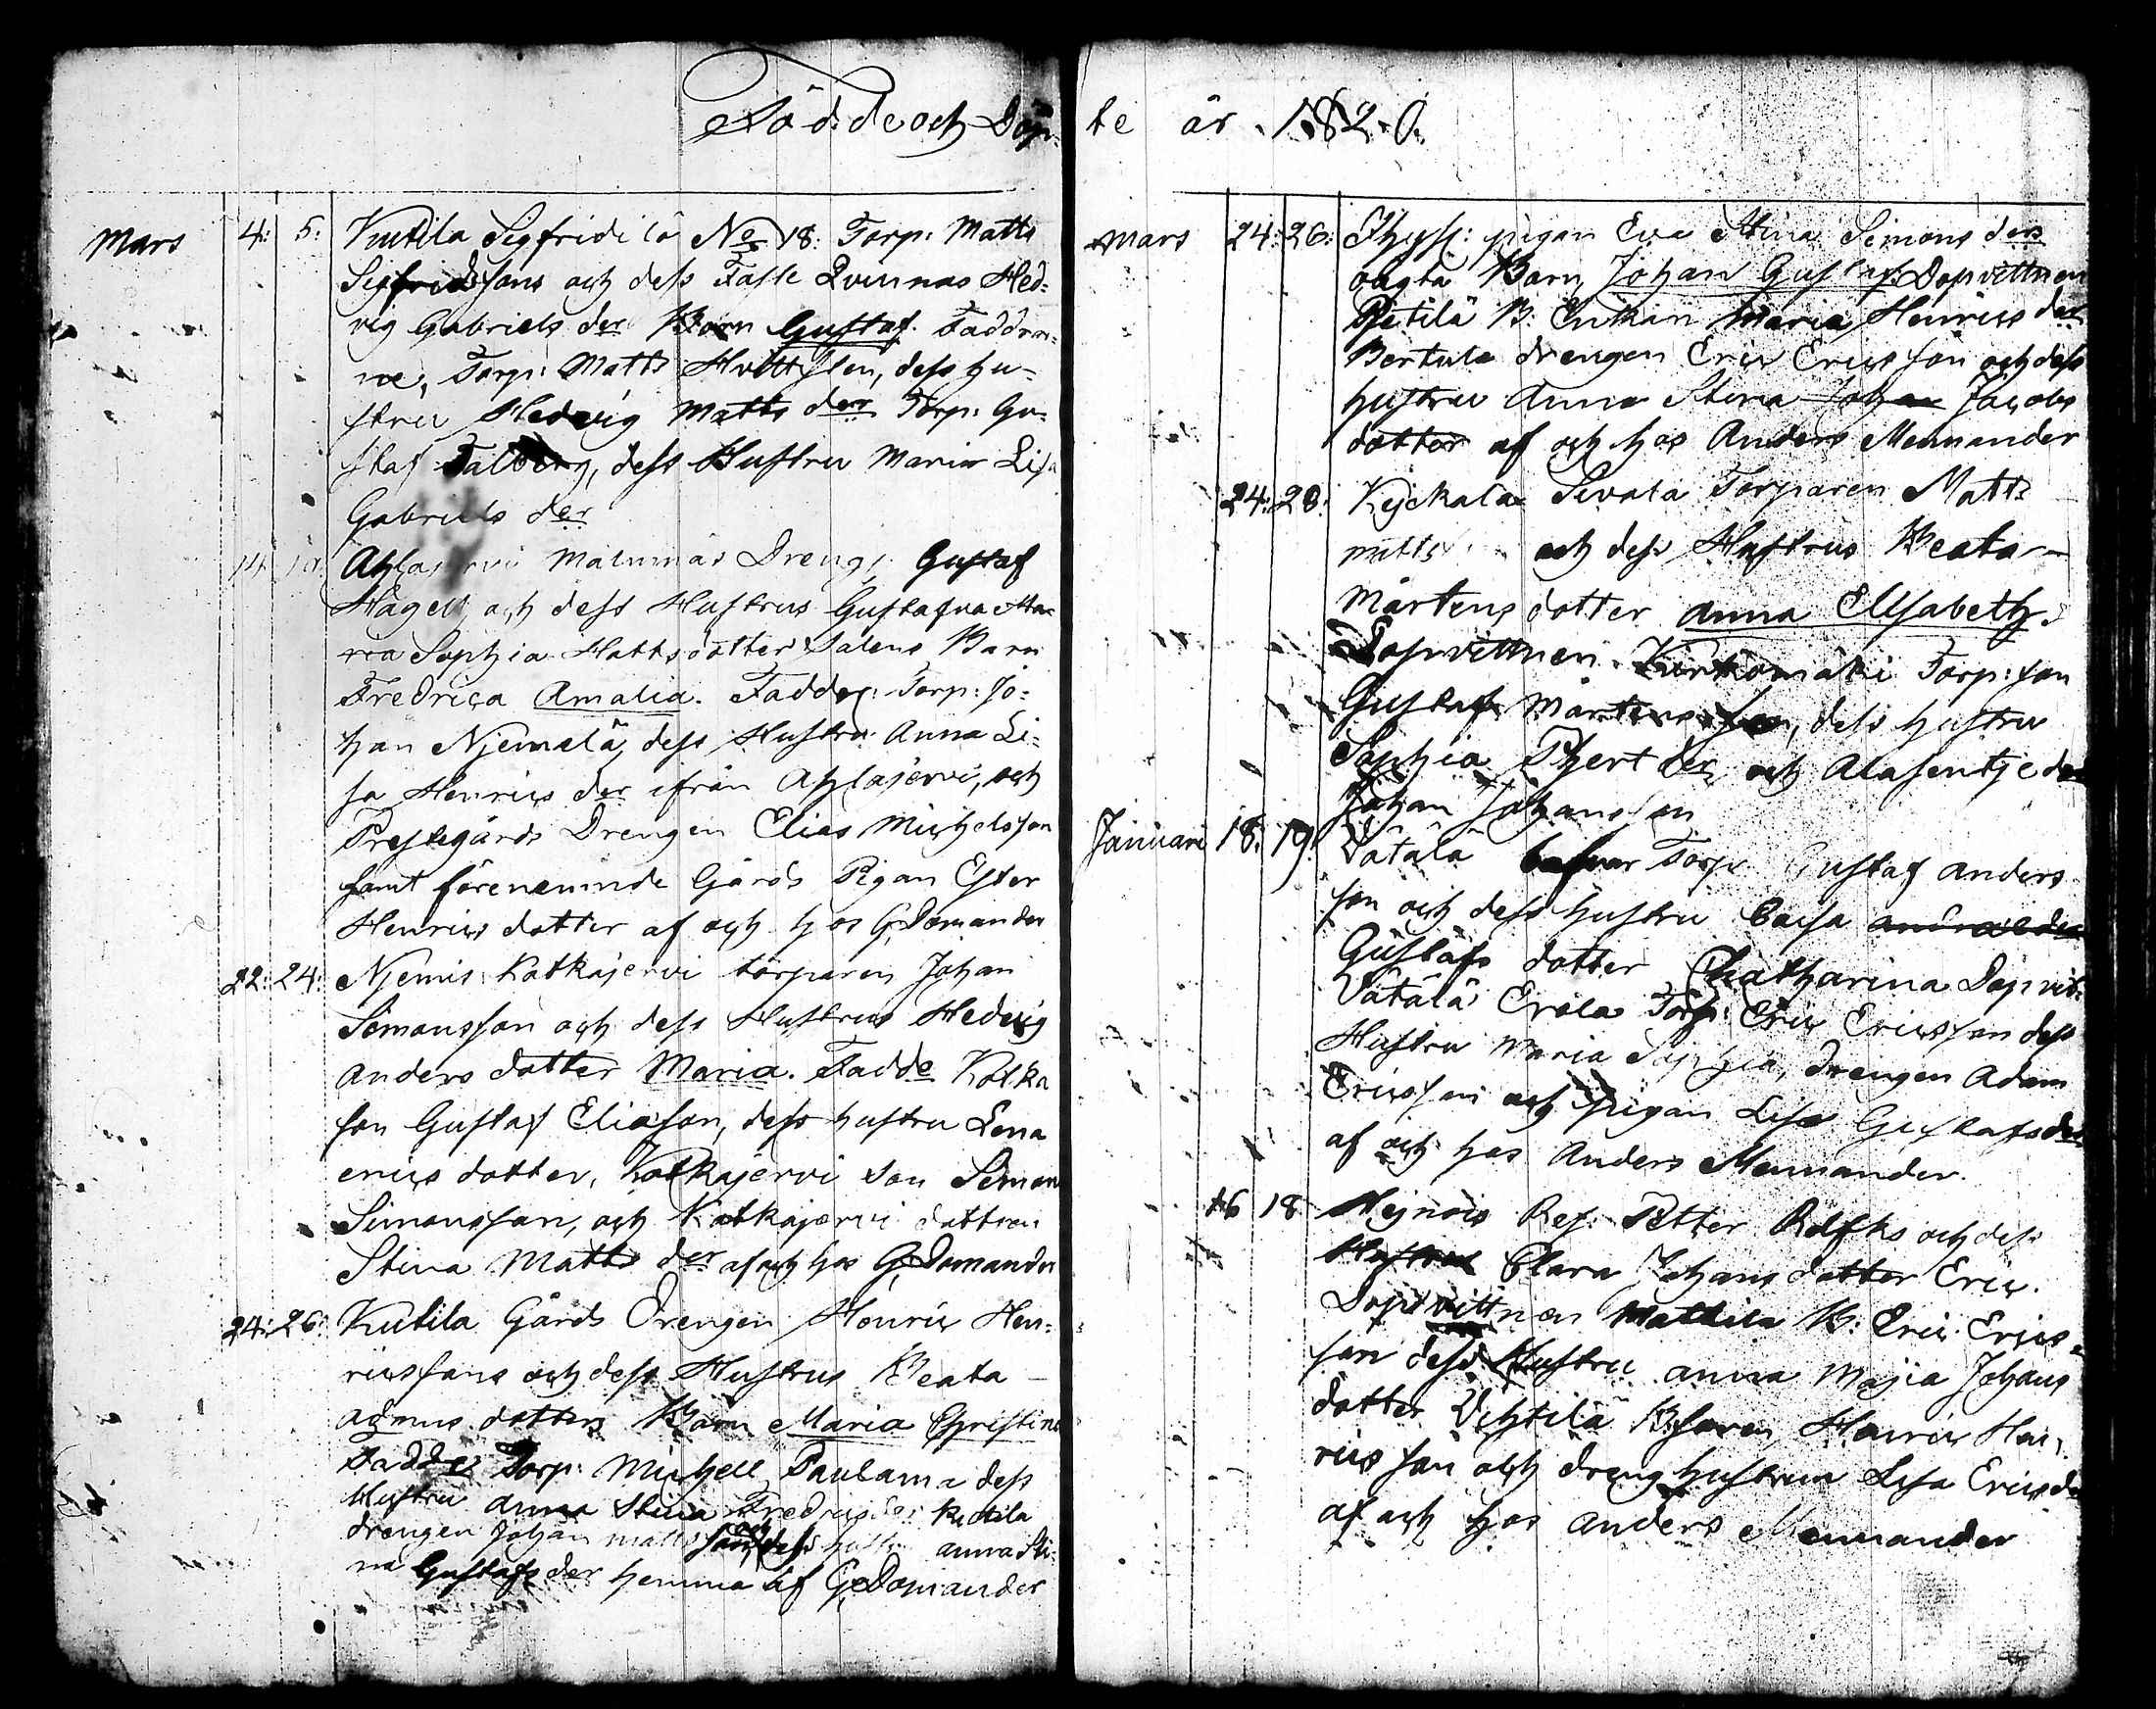 Föd.de och Döp-
te år 1820.
Mars 4: 5: Kutila Sigfridilä No 18: Torp: Matts
Sigfridssons och dess Fäste Qvinnas Hed-
vig Gabriels der Barn Gustaf. Faddrar-
ne, Torp: Matts, dess hu-
stru Hedvig Matts der Torp: Gu-
staf Talberg, dess Hustru Maria Lisa
Gabriels der
14 Drengs Gustaf
Hagell och dess Hustrus Gustafva Ma-
ria Sophia Mattsdotter Barn
Fredrica Amalia. Fadder: Torp: Jo-
han Njemelä, dess Hustru Anna Li-
sa Henrics der ifrån Ahlajervi, och
Prestegårds Drengen Elias Michelsson
samt förenemnde Gårds Pigan Ester
Henrics dotter af och hos G. Domander
22: 24: Njemis Kotkajervi torparen Johan
Simonsson och dess Hustrus Hedvig
Anders dotter Maria. Fadde Kotka
son Gustaf Eliason, dess hustru Lena
erics dotter, Kotkajervi son Simon
Simonsson, och Kotkajervi dottren
Stina Matts der af och hos G. Domander
24: 26: Kutila Gårds Drengen Henric Hen-
ricssons och dess Hustrus Beata
dotters Barn Maria Christina
Fadde Torp: Michell Paulama dess
Hustru Anna Stina Fredricsder Kutila
drengen Johan Matts son, och dess hustru anna Sti-
na Gustafs der hemma af G. Domander
Mars 24: 26: pigan Eva Stina Simons ders
oägta Barn, Johan Gustaf. Dopvittnen
B. Enkan Maria Henrics der
Bertula drengen Eric Ericsson och dess
hustru Anna Stina Johan Jacobs
dotter af och hos Anders Mennander
24: 28: Kejckala Sivola Torparen Matts
och dess Hustrus Beata
Mårtens dotter Anna Elisabeth.
Dopvittnen. Kurkomäki Torp: son
Gustaf Mårtensson, dess hustru
Sophia der, och
Johan Johansson
Januari 18. 19. Vätälä Torp Gustaf Anders
son och dess hustru Caisa
Gustafs dotter Chatharina Dopvit:
Vätälä Erola Torp: Eric Ericsson dess
Hustru Maria Sophia, drengen Adam
Ericsson och pigan Lisa Gustafsder
af och hos Anders Mennander.
16 18 Hejnois Petter och dess
Hustrus Clara Johans dotter Eric.
Dopvittnen Mattila B: Eric Erics-
son dess Hustru anna Majia Johans
dotter Henric Hen-
rics son och dreng hustrun Lisa Ericsder
af och hos Anders Mennander